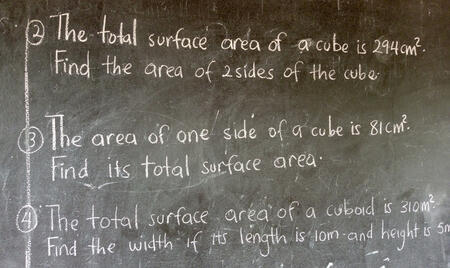 ② The total surface area of a cube is 294cm².
Find the area of 2 sides of the cube.
③ The area of one side of a cube is 81cm².
Find its total surface area.
④ The total surface area of a cuboid is 310m².
Find the width if its length is 10m and height is 5m